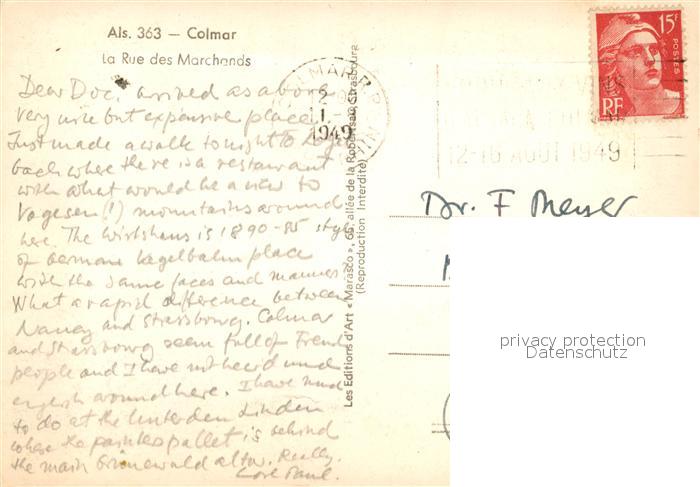 Als. 363 — Colmar
La Rue des Marchands
Dear Doc, arrived as above
very nice but expensive place
Just made a walk tonight to
back where there is a restaurant
with what would be a view to
Vogesen (!) mountains around
here. The Wirtshaus is 1890-85 style
of German Kegelbahn place
with the same faces and manners.
What a rapid difference between
Nancy and Strassbourg. Colmar
and Strassbourg seem full of French
people and I have not heard much
english around here. I have much
to do at the Unterden Linden
where the painters pallet is behind
the main Grünewald altar. Really.
Love Paul.
Les Editions d'Art « Marasco », 65, allée de la Robertsau, Strasbourg
(Reproduction Interdite)
COLMAR
1949
12-16 AOUT 1949
15F
POSTES
RF
Dr. F Meyer
privacy protection
Datenschutz